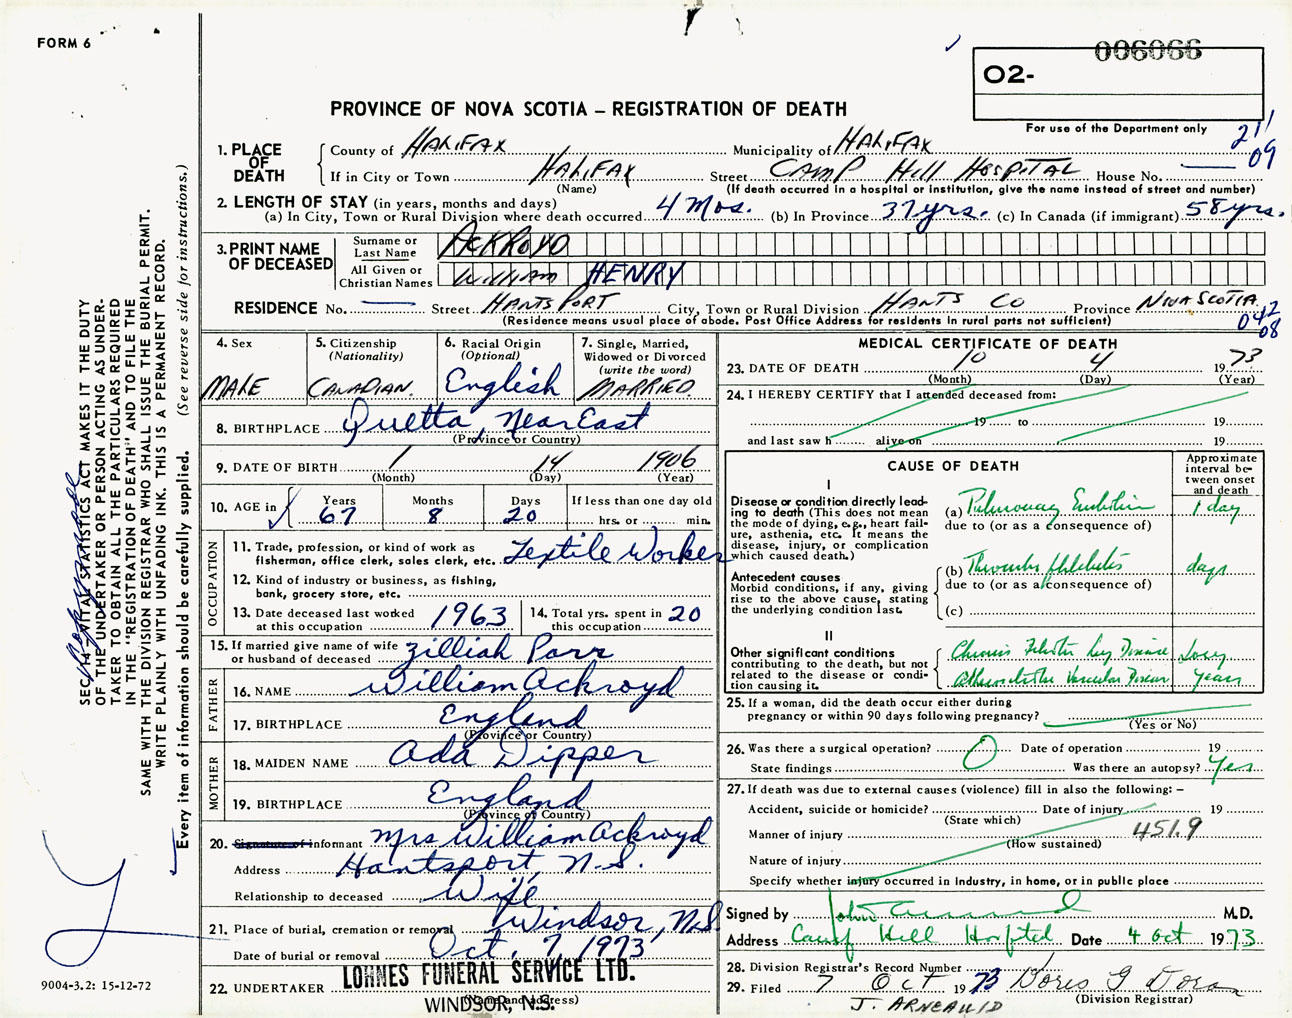 FORM 6
006066
O2-
For use of the Department only
211
09
PROVINCE OF NOVA SCOTIA – REGISTRATION OF DEATH
1. PLACE OF DEATH
County of HALIFAX Municipality of HALIFAX
If in City or Town HALIFAX Street CAMP Hill HOSPITAL House No. —
(Name) (If death occurred in a hospital or institution, give the name instead of street and number)
2. LENGTH OF STAY (in years, months and days)
(a) In City, Town or Rural Division where death occurred 4 Mos. (b) In Province 37 yrs. (c) In Canada (if immigrant) 58 yrs.
3. PRINT NAME OF DECEASED
Surname or Last Name ACKROYD
All Given or Christian Names WILLIAM HENRY
RESIDENCE No. — Street HANTSPORT City, Town or Rural Division HANTS CO Province NOVA SCOTIA
(Residence means usual place of abode. Post Office Address for residents in rural parts not sufficient)
042
08
4. Sex
MALE
5. Citizenship
(Nationality)
CANADIAN.
6. Racial Origin
(Optional)
English
7. Single, Married, Widowed or Divorced
(write the word)
MARRIED.
8. BIRTHPLACE Quetta, Near East
(Province or Country)
9. DATE OF BIRTH 1 14 1906
(Month) (Day) (Year)
10. AGE in
Years 67
Months 8
Days 20
If less than one day old
hrs. or min.
OCCUPATION
11. Trade, profession, or kind of work as fisherman, office clerk, sales clerk, etc. Textile Worker
12. Kind of industry or business, as fishing, bank, grocery store, etc.
13. Date deceased last worked at this occupation 1963
14. Total yrs. spent in this occupation 20
15. If married give name of wife or husband of deceased Zilliah Parr
FATHER
16. NAME William Ackroyd
17. BIRTHPLACE England
(Province or Country)
MOTHER
18. MAIDEN NAME Ada Dipper
19. BIRTHPLACE England
(Province or Country)
20. Signature of informant Mrs William Ackroyd
Address Hantsport, N.S.
Relationship to deceased Wife
21. Place of burial, cremation or removal Windsor, N.S.
Date of burial or removal Oct. 7, 1973
22. UNDERTAKER LOHNES FUNERAL SERVICE LTD.
(Name and address)
WINDSOR, N.S.
MEDICAL CERTIFICATE OF DEATH
23. DATE OF DEATH 10 4 1973
(Month) (Day) (Year)
24. I HEREBY CERTIFY that I attended deceased from:
19 to 19
and last saw h alive on 19
CAUSE OF DEATH
Approximate interval between onset and death
I
Disease or condition directly leading to death (This does not mean the mode of dying, e.g., heart failure, asthenia, etc. It means the disease, injury, or complication which caused death.)
(a) Pulmonary Embolism 1 day
due to (or as a consequence of)
Antecedent causes
Morbid conditions, if any, giving rise to the above cause, stating the underlying condition last.
(b) Thrombo phlebitis days
due to (or as a consequence of)
(c)
II
Other significant conditions
contributing to the death, but not related to the disease or condition causing it.
Chronic Lung Disease
Vascular Disease years
25. If a woman, did the death occur either during pregnancy or within 90 days following pregnancy?
(Yes or No)
26. Was there a surgical operation? O Date of operation 19
State findings Was there an autopsy? Yes
27. If death was due to external causes (violence) fill in also the following: –
Accident, suicide or homicide? Date of injury 19
(State which)
Manner of injury 451.9
(How sustained)
Nature of injury
Specify whether injury occurred in Industry, in home, or in public place
Signed by John M.D.
Address Camp Hill Hospital Date 4 Oct 1973
28. Division Registrar's Record Number
29. Filed 7 OCT 1973 Doris G
(Division Registrar)
J. ARNEAUID
SEC. 14 – VITAL STATISTICS ACT MAKES IT THE DUTY
OF THE UNDERTAKER OR PERSON ACTING AS UNDER-
TAKER TO OBTAIN ALL THE PARTICULARS REQUIRED
IN THE "REGISTRATION OF DEATH" AND TO FILE THE
SAME WITH THE DIVISION REGISTRAR WHO SHALL ISSUE THE BURIAL PERMIT.
WRITE PLAINLY WITH UNFADING INK. THIS IS A PERMANENT RECORD.
Every item of information should be carefully supplied. (See reverse side for instructions.)
9004-3.2: 15-12-72